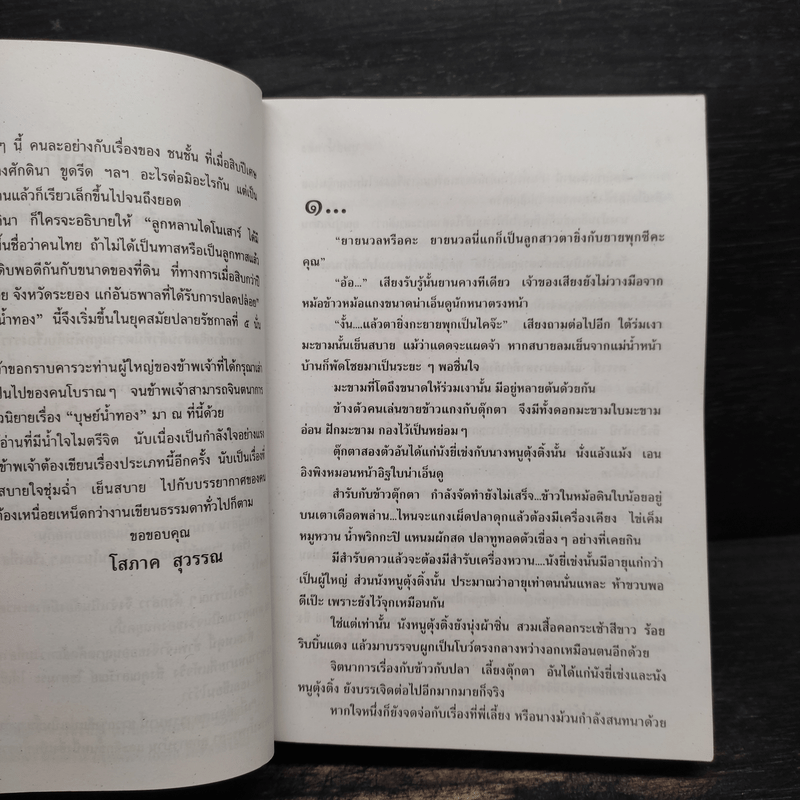 ๆ นี้ คนละอย่างกับเรื่องของ ชนชั้น ที่เมื่อสิบปีเศษ
งศักดินา ขูดรีด ฯลฯ อะไรต่อมิอะไรกัน แต่เป็น
านแล้วก็เรียวเล็กขึ้นไปจนถึงยอด
ดินา ก็ใครจะอธิบายให้ “ลูกหลานไดโนเสาร์ ได้มี
ขึ้นชื่อว่าคนไทย ถ้าไม่ได้เป็นทาสหรือเป็นลูกทาสแล้ว
ดิบพอดีกันกับขนาดของที่ดิน ที่ทางการเมื่อสิบกว่าปี
ย จังหวัดระยอง แก่อันธพาลที่ได้รับการปลดปล่อย”
น้ำทอง” นี้จึงเริ่มขึ้นในยุคสมัยปลายรัชกาลที่ ๕ นั่น
าขอกราบคารวะท่านผู้ใหญ่ของข้าพเจ้าที่ได้กรุณาเล่า
เป็นไปของคนโบราณๆ จนข้าพเจ้าสามารถจินตนาการ
วนิยายเรื่อง “บุษย์น้ำทอง” มา ณ ที่นี้ด้วย
อ่านที่มีน้ำใจไมตรีจิต นับเนื่องเป็นกำลังใจอย่างแรง
ข้าพเจ้าต้องเขียนเรื่องประเภทนี้อีกครั้ง นับเป็นเรื่องที่
สบายใจชุ่มฉ่ำ เย็นสบาย ไปกับบรรยากาศของคน
ต้องเหนื่อยเหน็ดกว่างานเขียนธรรมดาทั่วไปก็ตาม
ขอขอบคุณ
โสภาค สุวรรณ
๑...
“ยายนวลหรือคะ ยายนวลนี่แกก็เป็นลูกสาวตายิ่งกับยายพุกซีคะ
คุณ”
“อ้อ...” เสียงรับรู้นั้นยานคางทีเดียว เจ้าของเสียงยังไม่วางมือจาก
หม้อข้าวหม้อแกงขนาดน่าเอ็นดูนักหนาตรงหน้า
“งั้น....แล้วตายิ่งกะยายพุกเป็นไคจ๊ะ” เสียงถามต่อไปอีก ใต้ร่มเงา
มะขามนั้นเย็นสบาย แม้ว่าแดดจะแผดจ้า หากสบายลมเย็นจากแม่น้ำหน้า
บ้านก็พัดโชยมาเป็นระยะ ๆ พอชื่นใจ
มะขามที่โตถึงขนาดให้ร่มเงานั้น มีอยู่หลายต้นด้วยกัน
ข้างตัวคนเล่นขายข้าวแกงกับตุ๊กตา จึงมีทั้งดอกมะขามใบมะขาม
อ่อน ฝักมะขาม กองไว้เป็นหย่อมๆ
ตุ๊กตาสองตัวอันได้แก่นังยี่เข่งกับนางหนูตุ้งติ้งนั้น นั่งแอ้งแม้ง เอน
อิงพิงหมอนหน้าอิฐใบน่าเอ็นดู
สำรับกับข้าวตุ๊กตา กำลังจัดทำยังไม่เสร็จ...ข้าวในหม้อดินใบน้อยอยู่
บนเตาเดือดพล่าน...ไหนจะแกงเผ็ดปลาดุกแล้วต้องมีเครื่องเคียง ไข่เค็ม
หมูหวาน น้ำพริกกะปิ แหนมผักสด ปลาทูทอดตัวเขื่องๆ อย่างที่เคยกิน
มีสำรับคาวแล้วจะต้องมีสำรับเครื่องหวาน....นังยี่เข่งนั้นมีอายุแก่กว่า
เป็นผู้ใหญ่ ส่วนนังหนูตุ้งติ้งนั้น ประมาณว่าอายุเท่าตนนั่นแหละ ห้าขวบพอ
ดีเป๊ะ เพราะยังไว้จุกเหมือนกัน
ใช่แต่เท่านั้น นังหนูตุ้งติ้งยังนุ่งผ้าซิ่น สวมเสื้อคอกระเช้าสีขาว ร้อย
ริบบิ้นแดง แล้วมาบรรจบผูกเป็นโบว์ตรงกลางหว่างอกเหมือนตนอีกด้วย
จิตนาการเรื่องกับข้าวกับปลา เลี้ยงตุ๊กตา อันได้แก่นังยี่เข่งและนัง
หนูตุ้งติ้ง ยังบรรเจิดต่อไปอีกมากมายก็จริง
หากใจหนึ่งก็ยังจดจ่อกับเรื่องที่พี่เลี้ยง หรือนางม้วนกำลังสนทนาด้วย